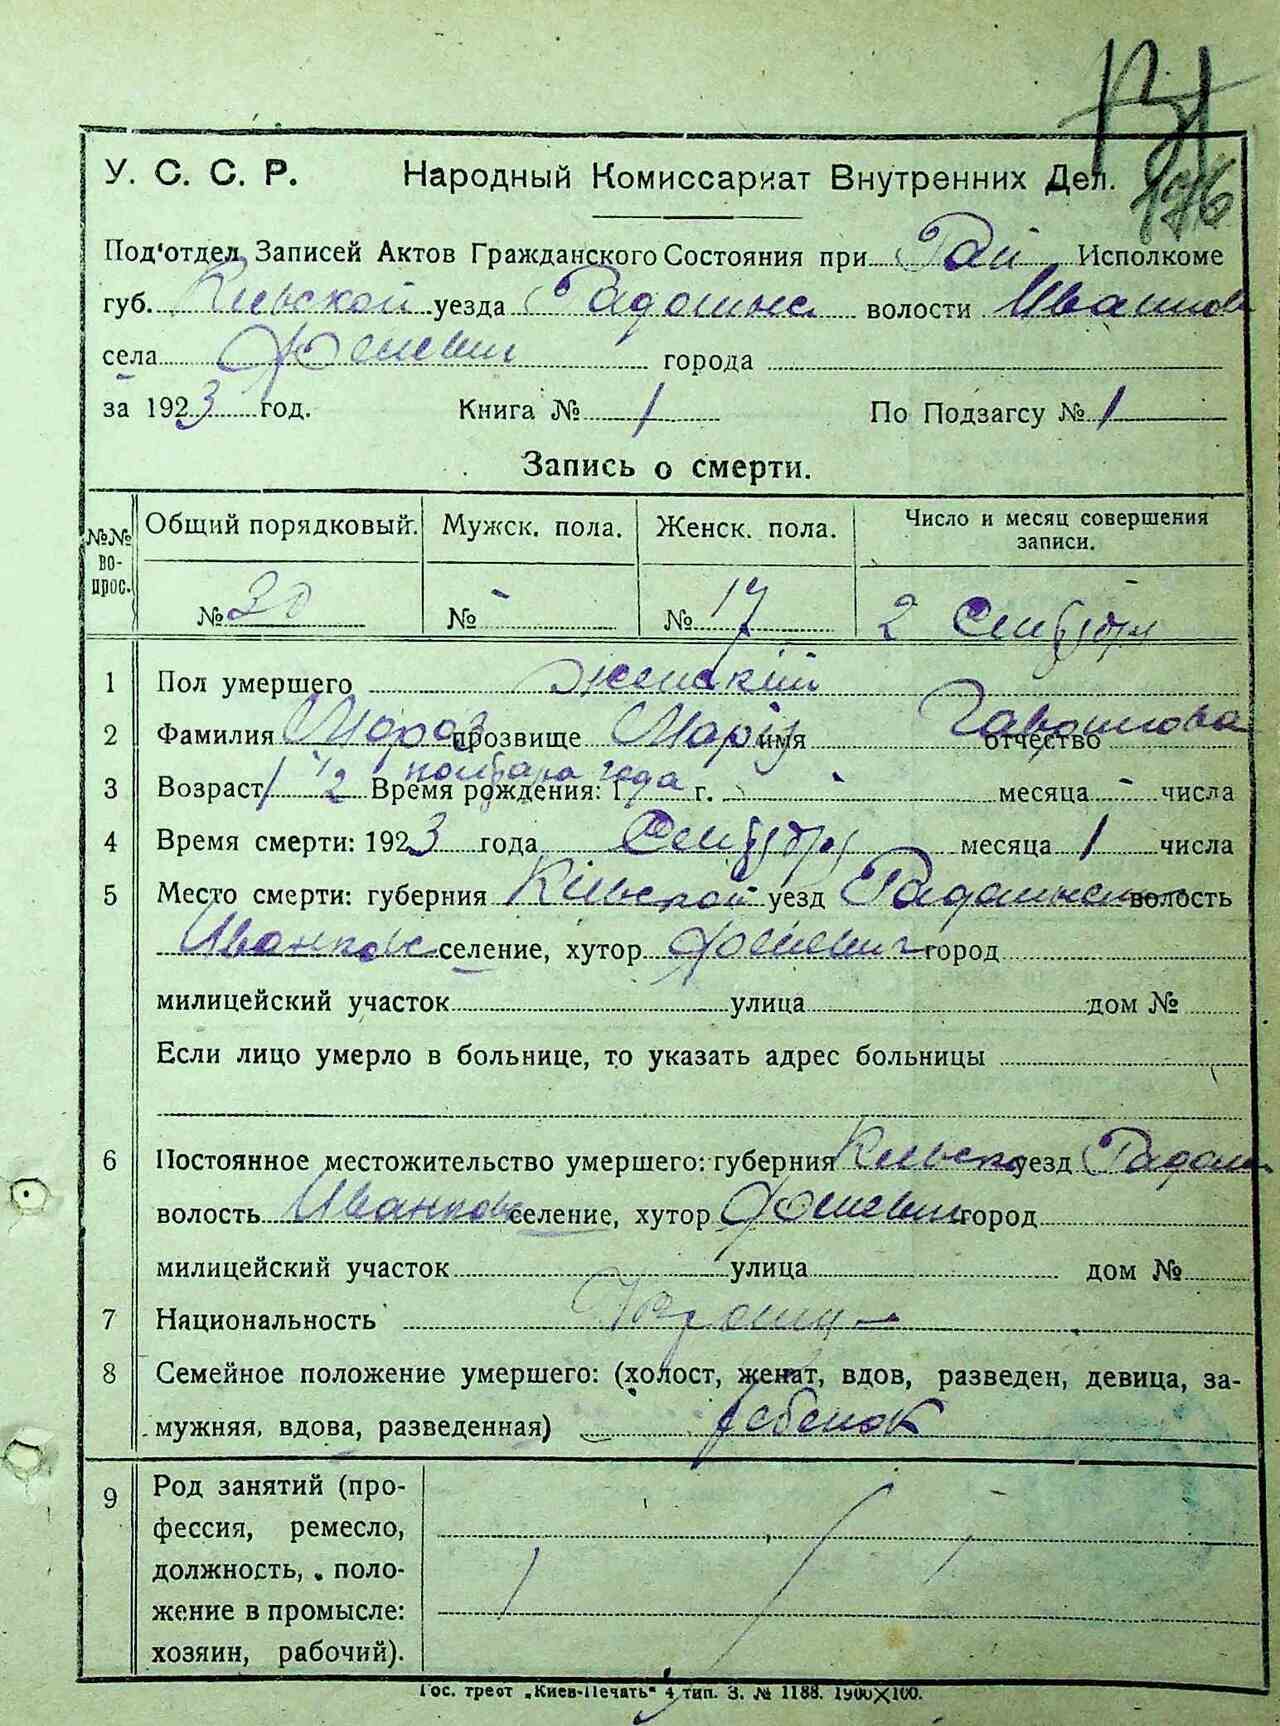 131
176
У. С. С. Р. Народный Комиссариат Внутренних Дел.
Под'отдел Записей Актов Гражданского Состояния при Рай Исполкоме
губ. Киевской уезда Радомыс волости Иванков
села Феневич города
за 1923 год. Книга № 1 По Подзагсу № 1
Запись о смерти.
№№ вопрос. Общий порядковый. Мужск. пола. Женск. пола. Число и месяц совершения записи.
№ 30 № - № 17 2 Сентября
1 Пол умершего женский
2 Фамилия Мороз прозвище Мария имя отчество
3 Возраст 1/2 года Время рождения: 1 г. - месяца - числа
4 Время смерти: 1923 года Сентября месяца 1 числа
5 Место смерти: губерния Киевской уезд Радомысл волость
Иванковс селение, хутор Феневич город
милицейский участок улица дом №
Если лицо умерло в больнице, то указать адрес больницы
6 Постоянное местожительство умершего: губерния Киевско уезд Радом
волость Иванков селение, хутор Феневич город
милицейский участок улица дом №
7 Национальность
8 Семейное положение умершего: (холост, женат, вдов, разведен, девица, за-
мужняя, вдова, разведенная) ребенок
9 Род занятий (про-
фессия, ремесло,
должность, поло-
жение в промысле:
хозяин, рабочий).
Гос. трест „Киев-Печать“ 4 тип. З. № 1188. 1900X100.